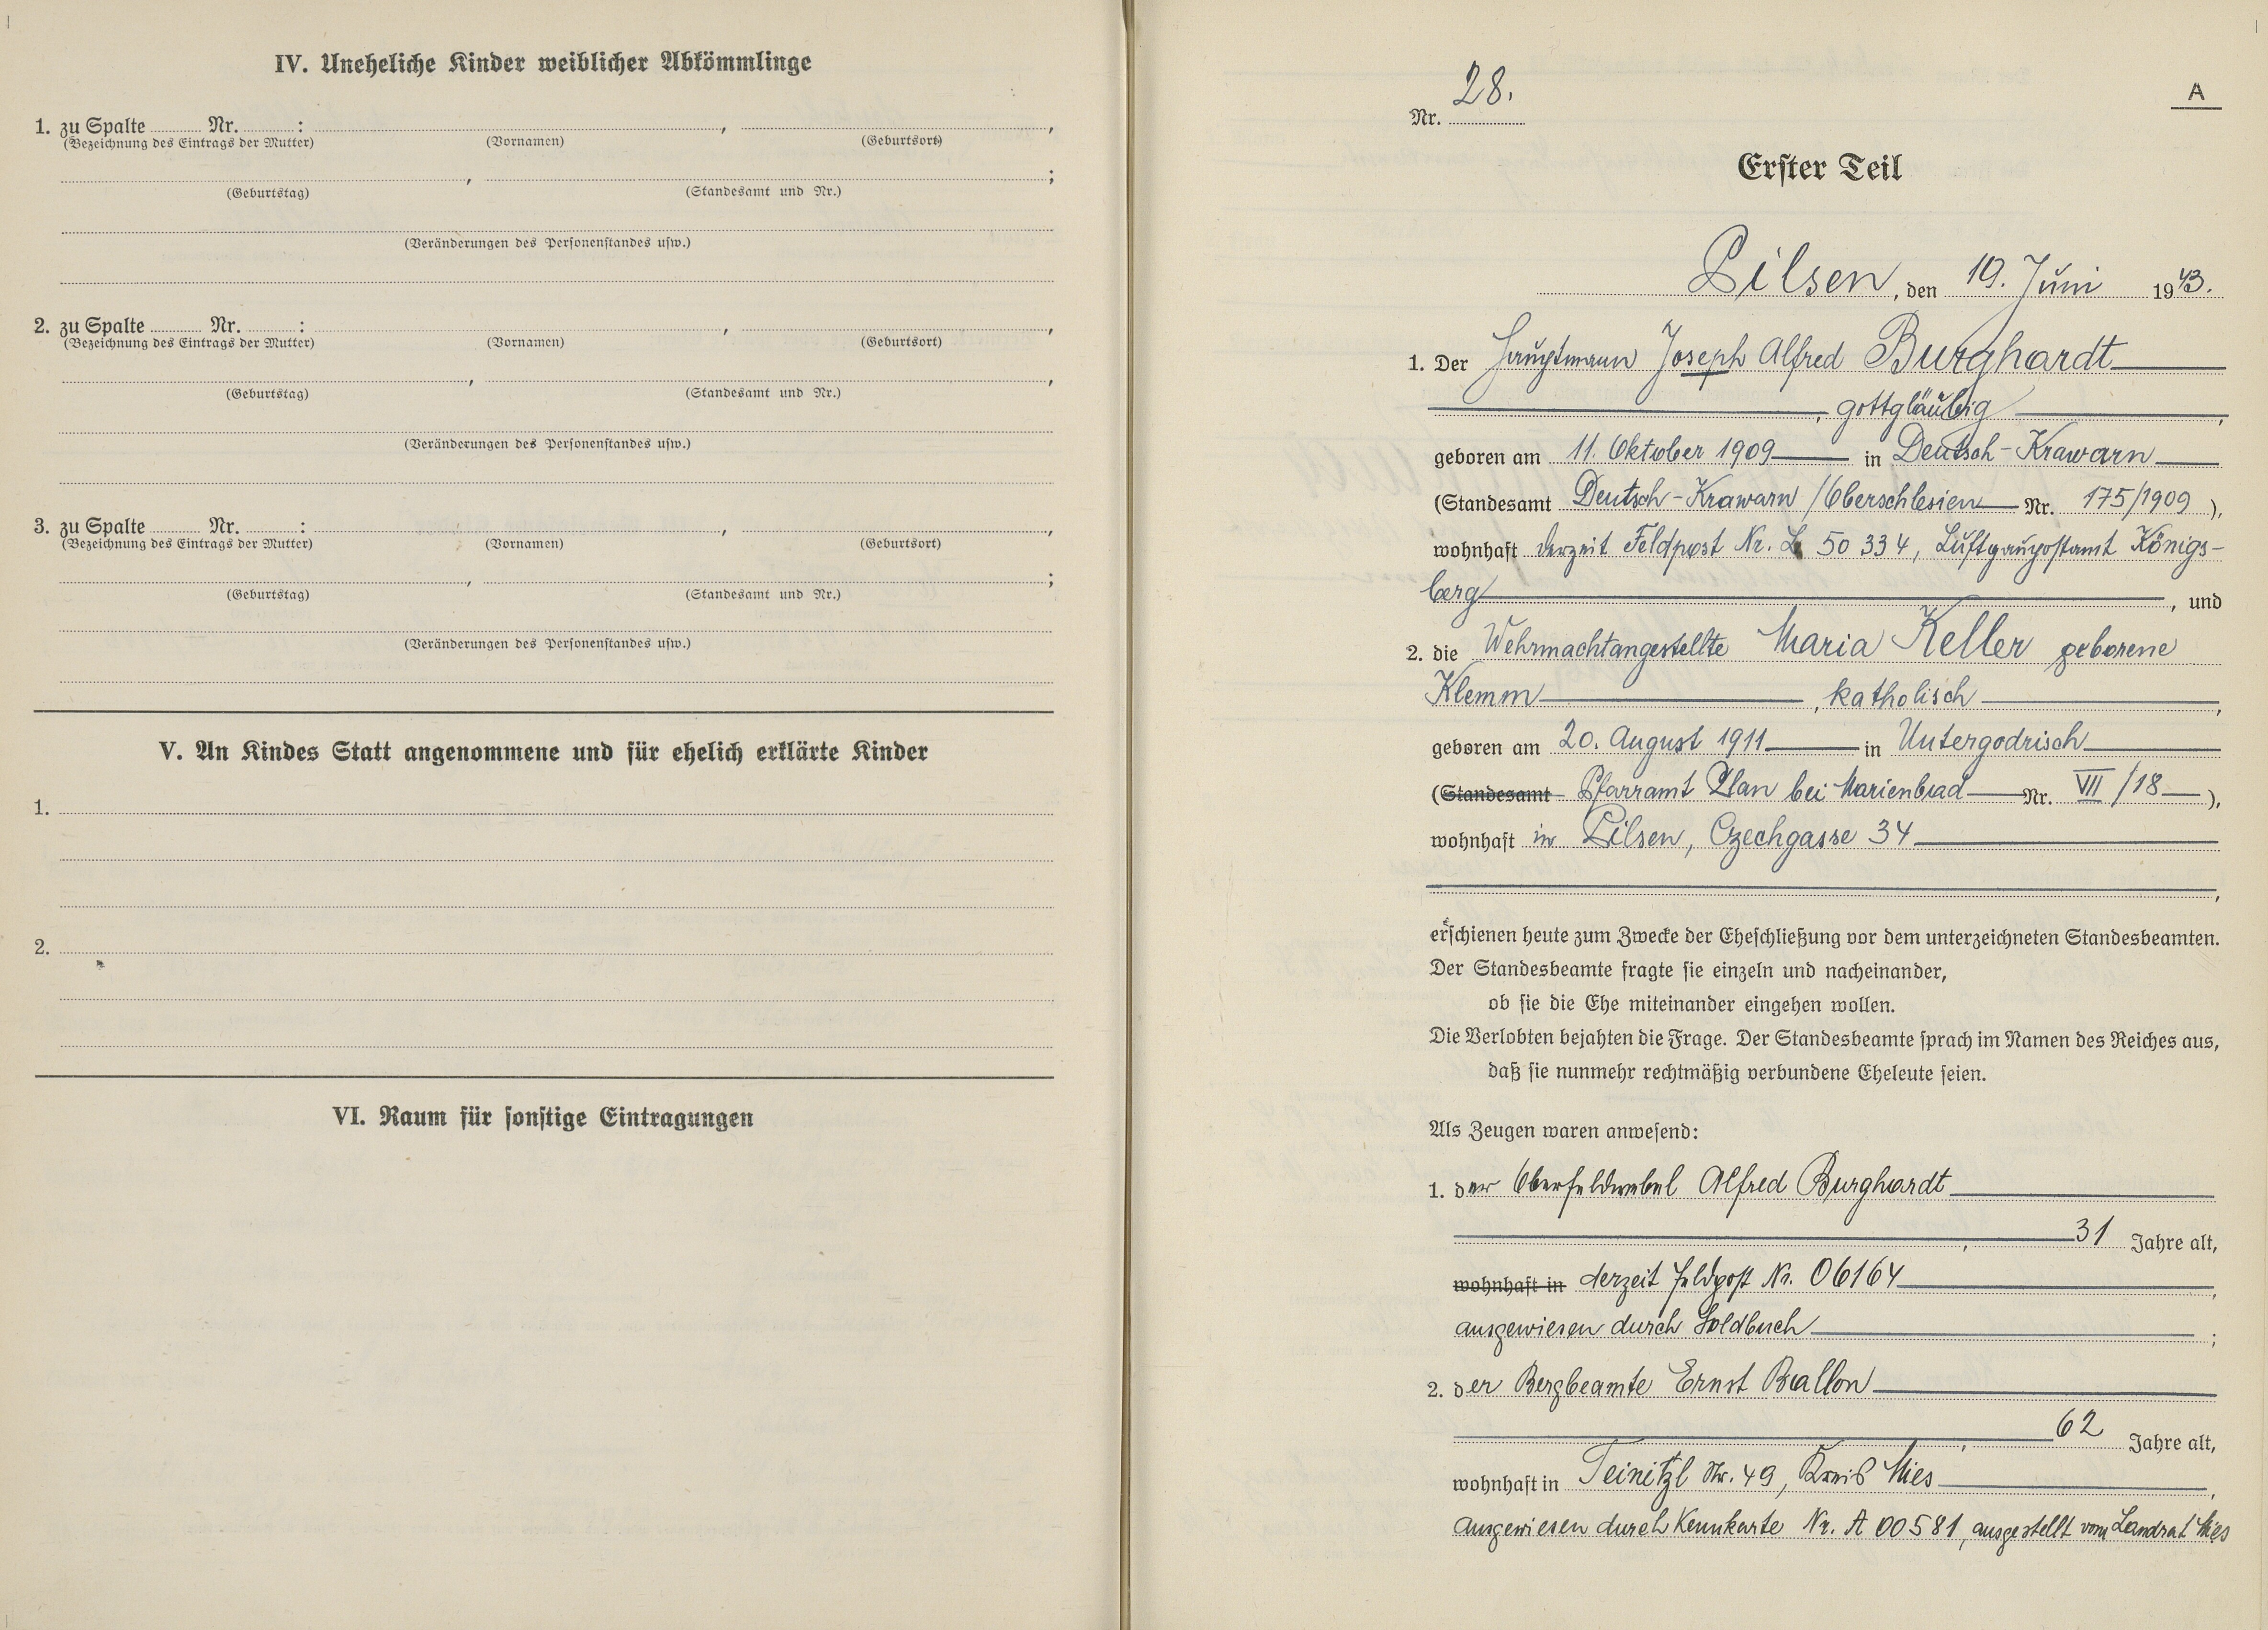 IV. Uneheliche Kinder weiblicher Abkömmlinge
1. zu Spalte ........ Nr. ........ : ........ , ........ ,
(Bezeichnung des Eintrags der Mutter) (Vornamen) (Geburtsort)
........ , ........ ;
(Geburtstag) (Standesamt und Nr.)
(Veränderungen des Personenstandes usw.)
2. zu Spalte ........ Nr. ........ : ........ , ........ ,
(Bezeichnung des Eintrags der Mutter) (Vornamen) (Geburtsort)
........ , ........ ,
(Geburtstag) (Standesamt und Nr.)
(Veränderungen des Personenstandes usw.)
3. zu Spalte ........ Nr. ........ : ........ , ........ ,
(Bezeichnung des Eintrags der Mutter) (Vornamen) (Geburtsort)
........ , ........ ;
(Geburtstag) (Standesamt und Nr.)
(Veränderungen des Personenstandes usw.)
V. An Kindes Statt angenommene und für ehelich erklärte Kinder
1.
2.
VI. Raum für sonstige Eintragungen
A
Nr. 28.
Erster Teil
Pilsen, den 19. Juni 1943.
1. Der Hauptmann Joseph Alfred Burghardt
, gottgläubig ,
geboren am 11. Oktober 1909 in Deutsch-Krawarn
(Standesamt Deutsch-Krawarn/Oberschlesien Nr. 175/1909 ),
wohnhaft derzeit Feldpost Nr. L 50 334, Luftgaupostamt Königs-
berg , und
2. die Wehrmachtangestellte Maria Keller geborene
Klemm , katholisch ,
geboren am 20. August 1911 in Untergodrisch
(Standesamt Pfarramt Plan bei Marienbad Nr. VII/18 ),
wohnhaft in Pilsen, Czechgasse 34
,
erschienen heute zum Zwecke der Eheschließung vor dem unterzeichneten Standesbeamten.
Der Standesbeamte fragte sie einzeln und nacheinander,
ob sie die Ehe miteinander eingehen wollen.
Die Verlobten bejahten die Frage. Der Standesbeamte sprach im Namen des Reiches aus,
daß sie nunmehr rechtmäßig verbundene Eheleute seien.
Als Zeugen waren anwesend:
1. der Oberfeldwebel Alfred Burghardt
, 31 Jahre alt,
wohnhaft in derzeit Feldpost Nr. 06164 ,
ausgewiesen durch Soldbuch ;
2. der Bergbeamte Ernst Ballon
, 62 Jahre alt,
wohnhaft in Teinitzl Nr. 49, Kreis Mies ,
ausgewiesen durch Kennkarte Nr. A 00581, ausgestellt vom Landrat Mies